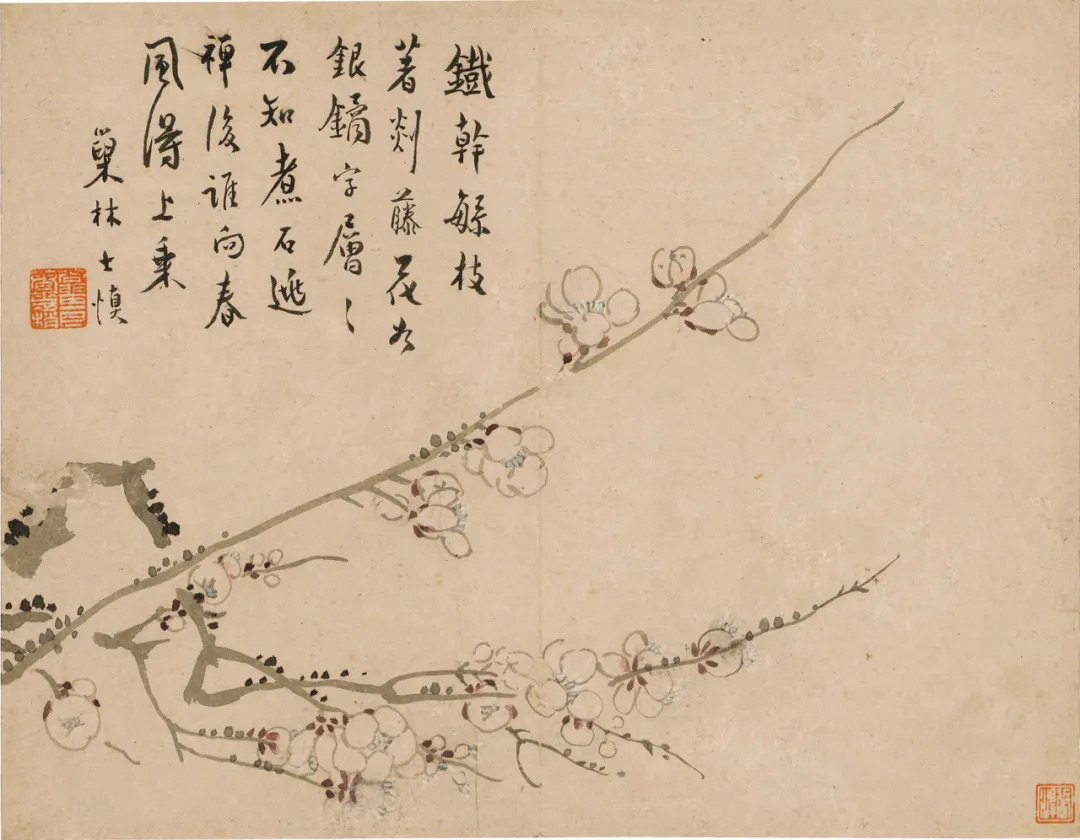 鐵幹緐枝
著剡藤花如
銀鏑字層〻
不知煮石逃
禪後誰向春
風得上乘
巢林士慎